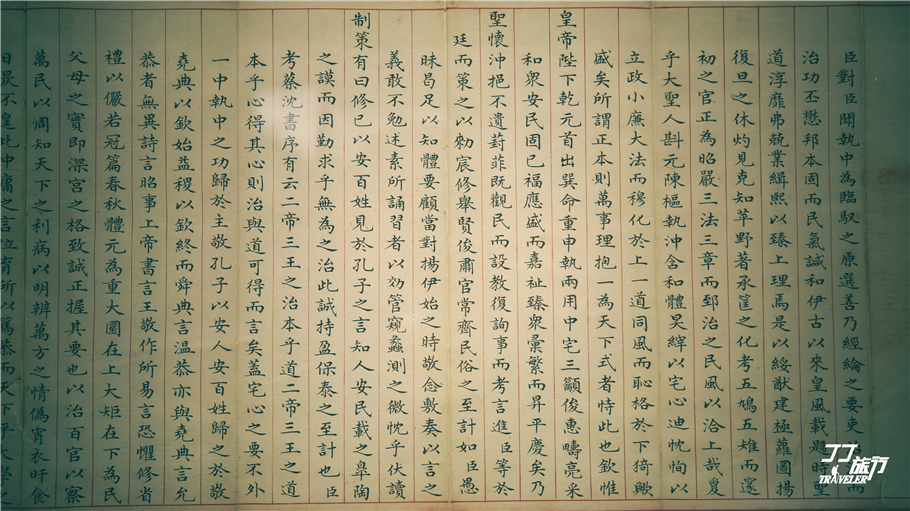 臣對臣聞執中為臨馭之原選善乃經綸之要吏而
治功丕懋邦本固而民氣諴和伊古以來皇風載題時聖
道淳靡弗兢業緝熙以臻上理焉是以綏猷建極蘿圖揚
復旦之休灼見克知莘野著承筐之化考五鳩五雉而邃
初之官正為昭嚴三法三章而郅治之民風以洽上哉敻
乎大聖人斟元陳樞執沖含和體昊縡以宅心迪忱恂以
立政小廉大法而穆化於上一道同風而恥格於下猗歟
盛矣所謂正本則萬事理抱一為天下式者恃此也欽惟
皇帝陛下乾元首出巽命重申執兩用中宅三籲俊惠疇亮采
和眾安民固已福應盛而嘉祉臻眾彙繁而昇平慶矣乃
聖懷沖挹不遺葑菲既觀民而設教復詢事而考言進臣等於
廷而策之以勑宸修舉賢俊肅官常齊民俗之至計如臣愚
昧曷足以知體要顧當對揚伊始之時敬念敷奏以言之
義敢不勉述素所誦習者以効管窺蠡測之微忱乎伏讀
制策有曰修己以安百姓見於孔子之言知人安民載之皋陶
之謨而因勤求乎無為之治此誠持盈保泰之至計也臣
考蔡沈書序有云二帝三王之治本乎道二帝三王之道
本乎心得其心則治與道可得而言矣蓋宅心之要不外
一中執中之功歸於主敬孔子以安人安百姓歸之於敬
堯典以欽始益稷以欽終而舜典言溫恭亦與堯典言允
恭者無異詩言昭事上帝書言王敬作所易言恐懼修省
禮以儼若冠篇春秋體元為重大圜在上大矩在下為民
父母之實即深宮之格致誠正握其要也以治百官以察
萬民以周知天下之利病以明辨萬方之情偽宵衣旰食
日昃不遑此中庸之言立育所以篤恭而天下平大學之
旅行
TRAVELER